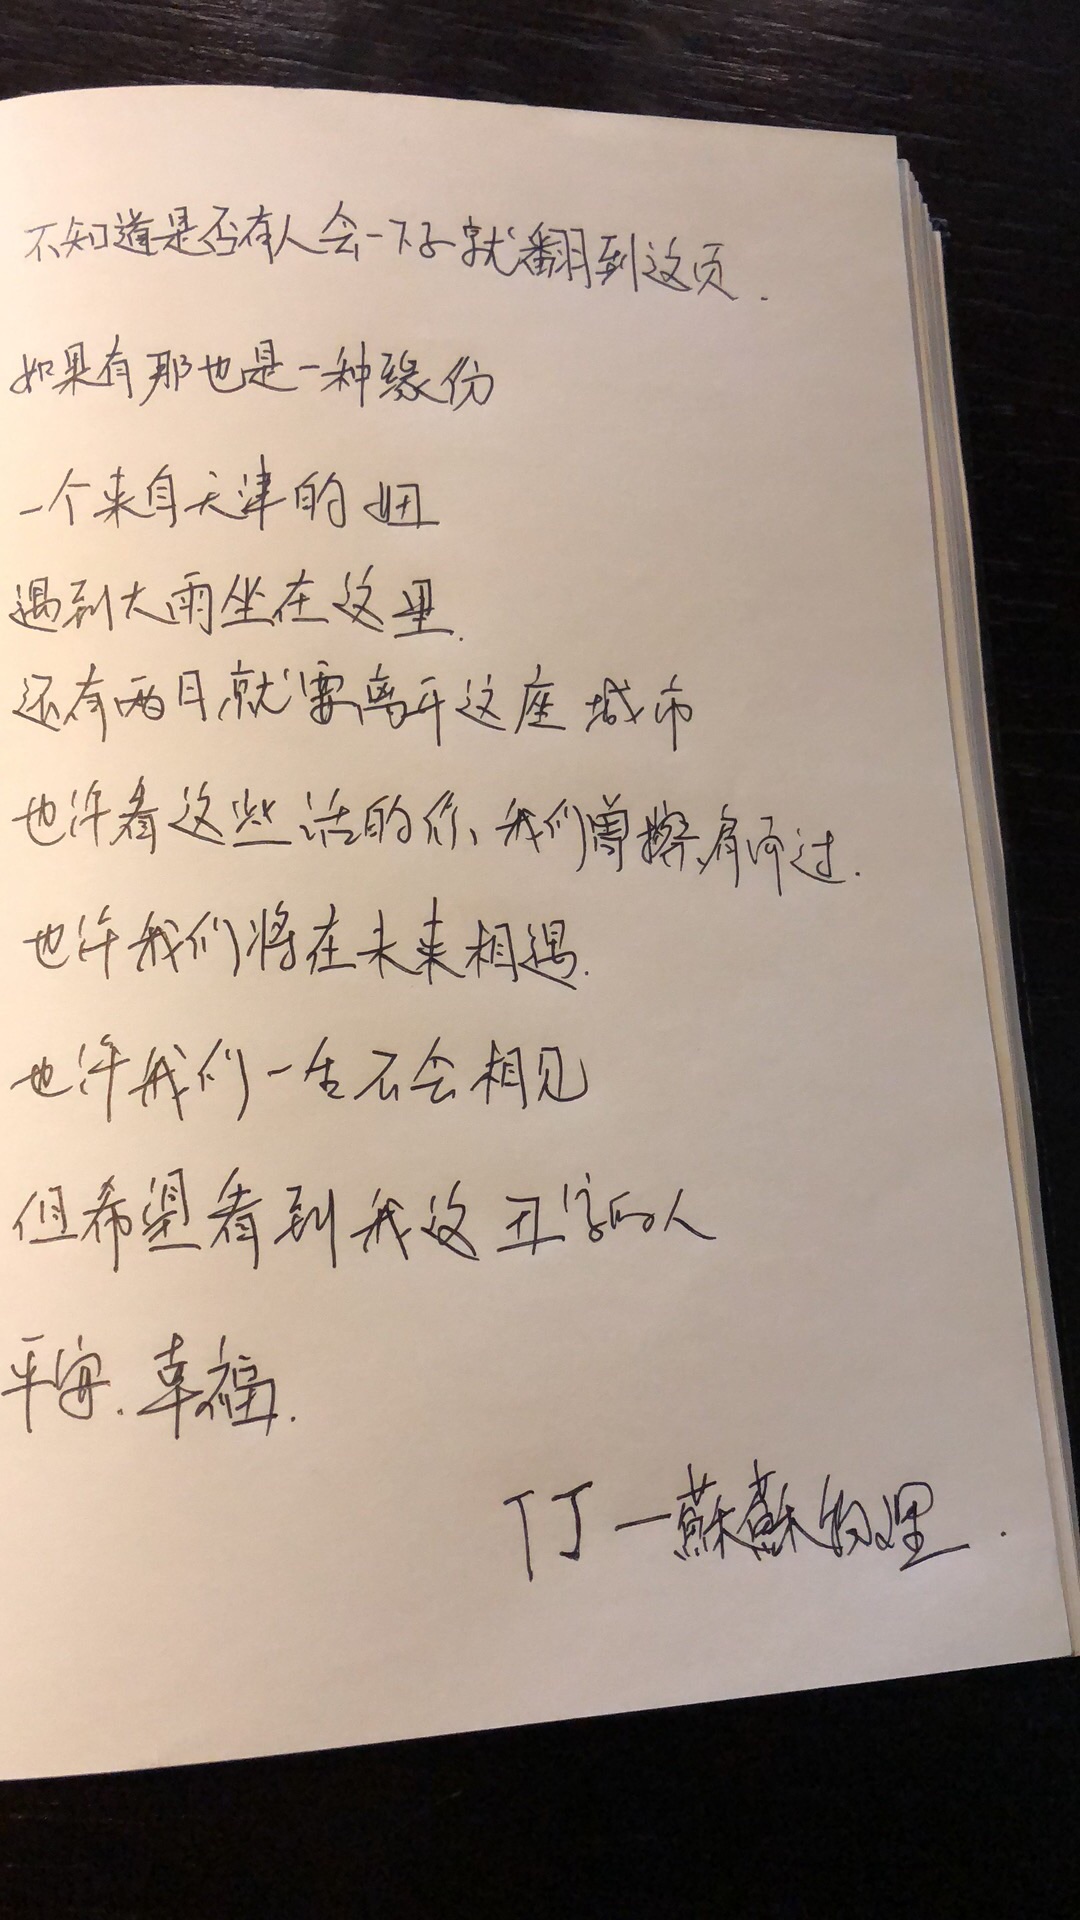 不知道是否有人会一下子就翻到这页.
如果有那也是一种缘份
一个来自天津的妞
遇到大雨坐在这里.
还有两日就要离开这座城市
也许看这些话的你、我们曾擦肩而过.
也许我们将在未来相遇.
也许我们一生不会相见
但希望看到我这丑字的人
平安.幸福.
丁一蘇蘇